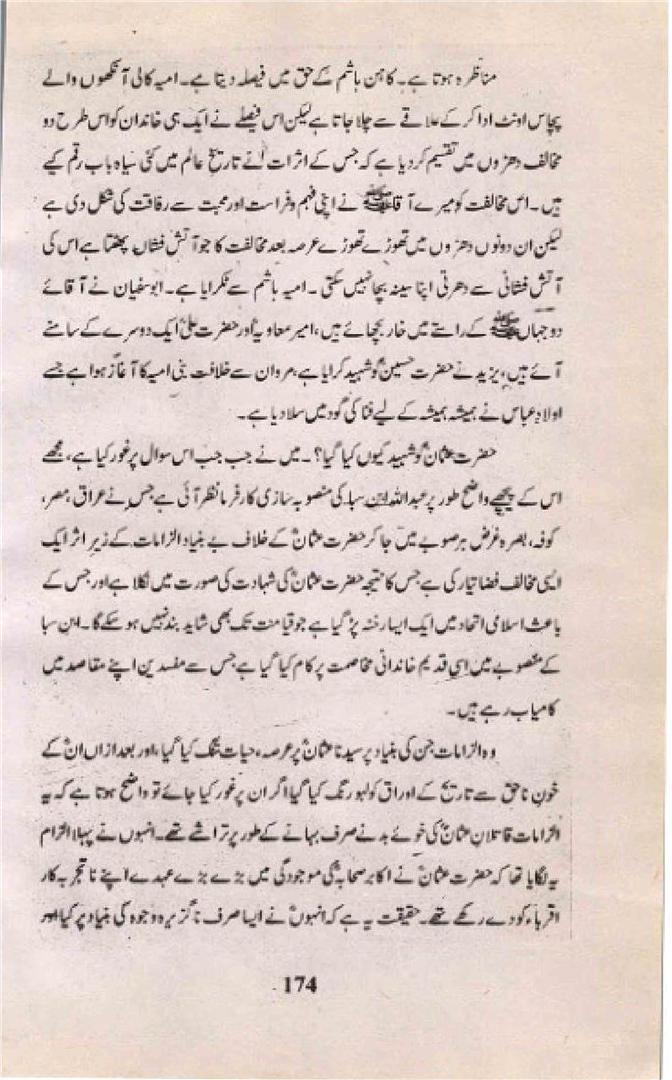 مناظرہ ہوتا ہے۔ کاہن ہاشم کے حق میں فیصلہ دیتا ہے۔ امیہ کالی آنکھوں والے
پچاس اونٹ ادا کر کے علاقے سے چلا جاتا ہے لیکن اس فیصلے نے ایک ہی خاندان کو اس طرح دو
مخالف دھڑوں میں تقسیم کر دیا ہے کہ جس کے اثرات نے تاریخ عالم میں کئی سیاہ باب رقم کیے
ہیں۔ اس مخالفت کو میرے آقا ﷺ نے اپنی فہم و فراست اور محبت سے رفاقت کی شکل دی ہے
لیکن ان دونوں دھڑوں میں تھوڑے تھوڑے عرصہ بعد مخالفت کا جو آتش فشاں پھٹتا ہے اس کی
آتش فشانی سے دھرتی اپنا سینہ بچا نہیں سکتی۔ امیہ ہاشم سے ٹکرایا ہے۔ ابوسفیان نے آقائے
دو جہاں ﷺ کے راستے میں خار بچھائے ہیں، امیر معاویہؓ اور حضرت علیؓ ایک دوسرے کے سامنے
آئے ہیں، یزید نے حضرت حسینؓ کو شہید کرایا ہے، مروان سے خلافت بنی امیہ کا آغاز ہوا ہے جسے
اولادِ عباس نے ہمیشہ ہمیشہ کے لیے فنا کی گود میں سلا دیا ہے۔
حضرت عثمانؓ کو شہید کیوں کیا گیا؟۔ میں نے جب جب اس سوال پر غور کیا ہے، مجھے
اس کے پیچھے واضح طور پر عبداللہ ابن سبا کی منصوبہ سازی کارفرما نظر آئی ہے جس نے عراق، مصر،
کوفہ، بصرہ غرض ہر صوبے میں جا کر حضرت عثمانؓ کے خلاف بے بنیاد الزامات کے زیر اثر ایک
ایسی مخالف فضا تیار کی ہے جس کا نتیجہ حضرت عثمانؓ کی شہادت کی صورت میں نکلا ہے اور جس کے
باعث اسلامی اتحاد میں ایک ایسا رخنہ پڑ گیا ہے جو قیامت تک بھی شاید بند نہیں ہو سکے گا۔ ابن سبا
کے منصوبے میں اسی قدیم خاندانی مخاصمت پر کام کیا گیا ہے جس سے مفسدین اپنے مقاصد میں
کامیاب رہے ہیں۔
وہ الزامات جن کی بنیاد پر سیدنا عثمانؓ پر عرصہ، حیات تنگ کیا گیا، اور بعد ازاں ان کے
خونِ ناحق سے تاریخ کے اوراق کو لہو رنگ کیا گیا اگر ان پر غور کیا جائے تو واضح ہوتا ہے کہ یہ
الزامات قاتلانِ عثمانؓ کی خوئے بد نے صرف بہانے کے طور پر تراشے تھے۔ انہوں نے پہلا الزام
یہ لگایا تھا کہ حضرت عثمانؓ نے اکابر صحابہؓ کی موجودگی میں بڑے بڑے عہدے اپنے ناتجربہ کار
اقرباء کو دے رکھے تھے۔ حقیقت یہ ہے کہ انہوںؓ نے ایسا صرف ناگزیر وجوہ کی بنیاد پر کیا اور
174